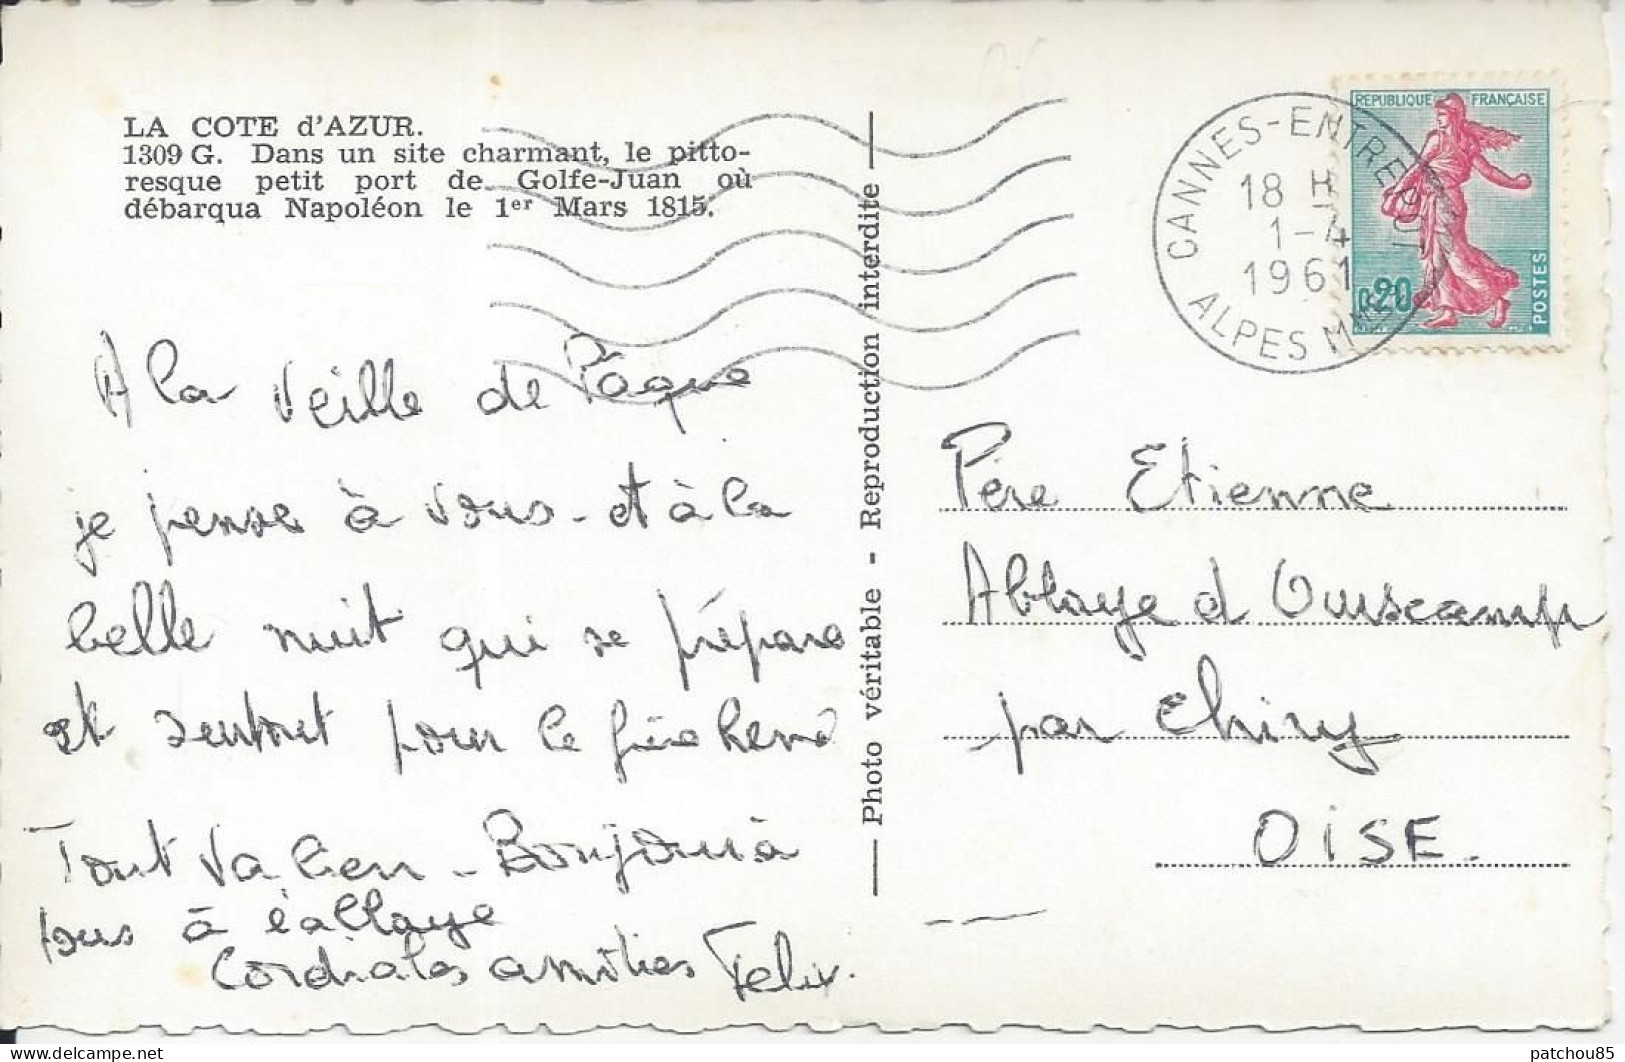 LA COTE d'AZUR.
1309 G. Dans un site charmant, le pitto-
resque petit port de Golfe-Juan où
débarqua Napoléon le 1er Mars 1815.
A la veille de Pâque
je pense à vous - et à la
belle nuit qui se prépare
et surtout pour le frère René
Tout va bien - Bonjour à
tous à l'abbaye
Cordiales amitiés Felix.
Photo véritable - Reproduction interdite
CANNES-ENTREPOT
18 H
1-4
1961
ALPES MMES
REPUBLIQUE FRANÇAISE
0,20
POSTES
Père Etienne
Abbaye d Ourscamp
par Chiry
OISE.
patchou85